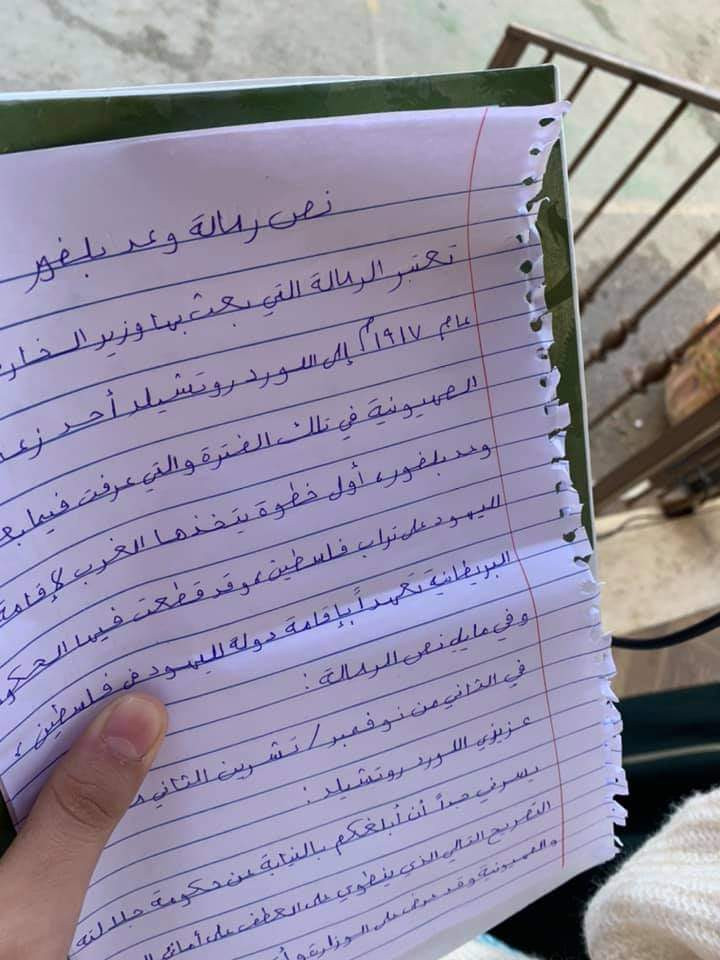 نص رسالة وعد بلفور
تعتبر الرسالة التي بعث بها وزير الخار
عام ١٩١٧م إلى اللورد روتشيلد أحد زعـ
الصهيونية في تلك الفترة والتي عرفت فيما بعـ
وعد بلفور، أول خطوة يتخذها الغرب لإقامة
لليهود على تراب فلسطين، وقد قطعت فيها الحكو
البريطانية تعهداً بإقامة دولة لليهود في فلسطين،
وفي مايلي نص الرسالة:
في الثاني من نوفمبر / تشرين الثاني
عزيزي اللورد روتشيلد:
يسرني جداً أن أبلغكم بالنيابة عن حكومة جلالته
التصريح التالي الذي ينطوي على العطف على أماني
والصهيونية وقد عرض على الوزارة و